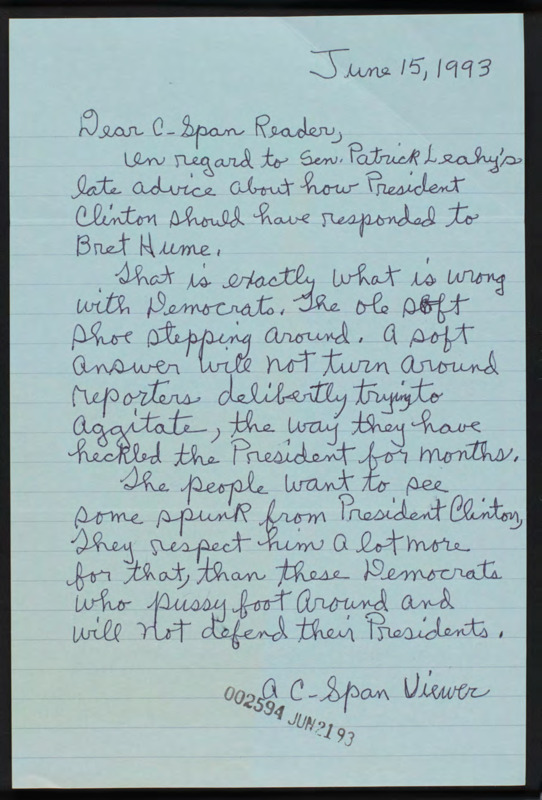 June 15, 1993
Dear C-Span Reader,
In regard to Sen. Patrick Leahy's
late advice about how President
Clinton should have responded to
Bret Hume.
That is exactly what is wrong
with Democrats. The ole soft
shoe stepping around. A soft
answer will not turn around
reporters delibertly trying to
aggitate, the way they have
heckled the President for months.
The people want to see
some spunk from President Clinton,
They respect him a lot more
for that, than these Democrats
who pussy foot around and
will not defend their Presidents.
A C-Span Viewer
002594 JUN 21 93